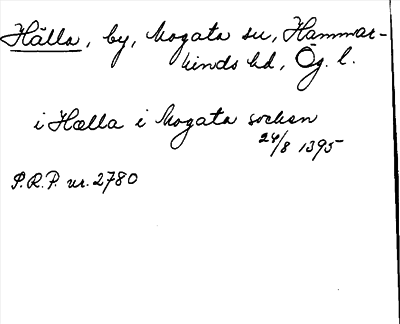 Hälla, by, Mogata sn, Hammar-
kinds hd, Ög. l.
i Hælla i Mogata socken
24/8 1395
P.R.P. nr. 2780